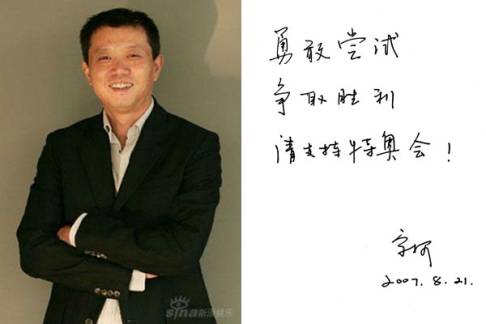 勇敢尝试
争取胜利
请支持特奥会！
2007.8.21.
sina新浪娱乐